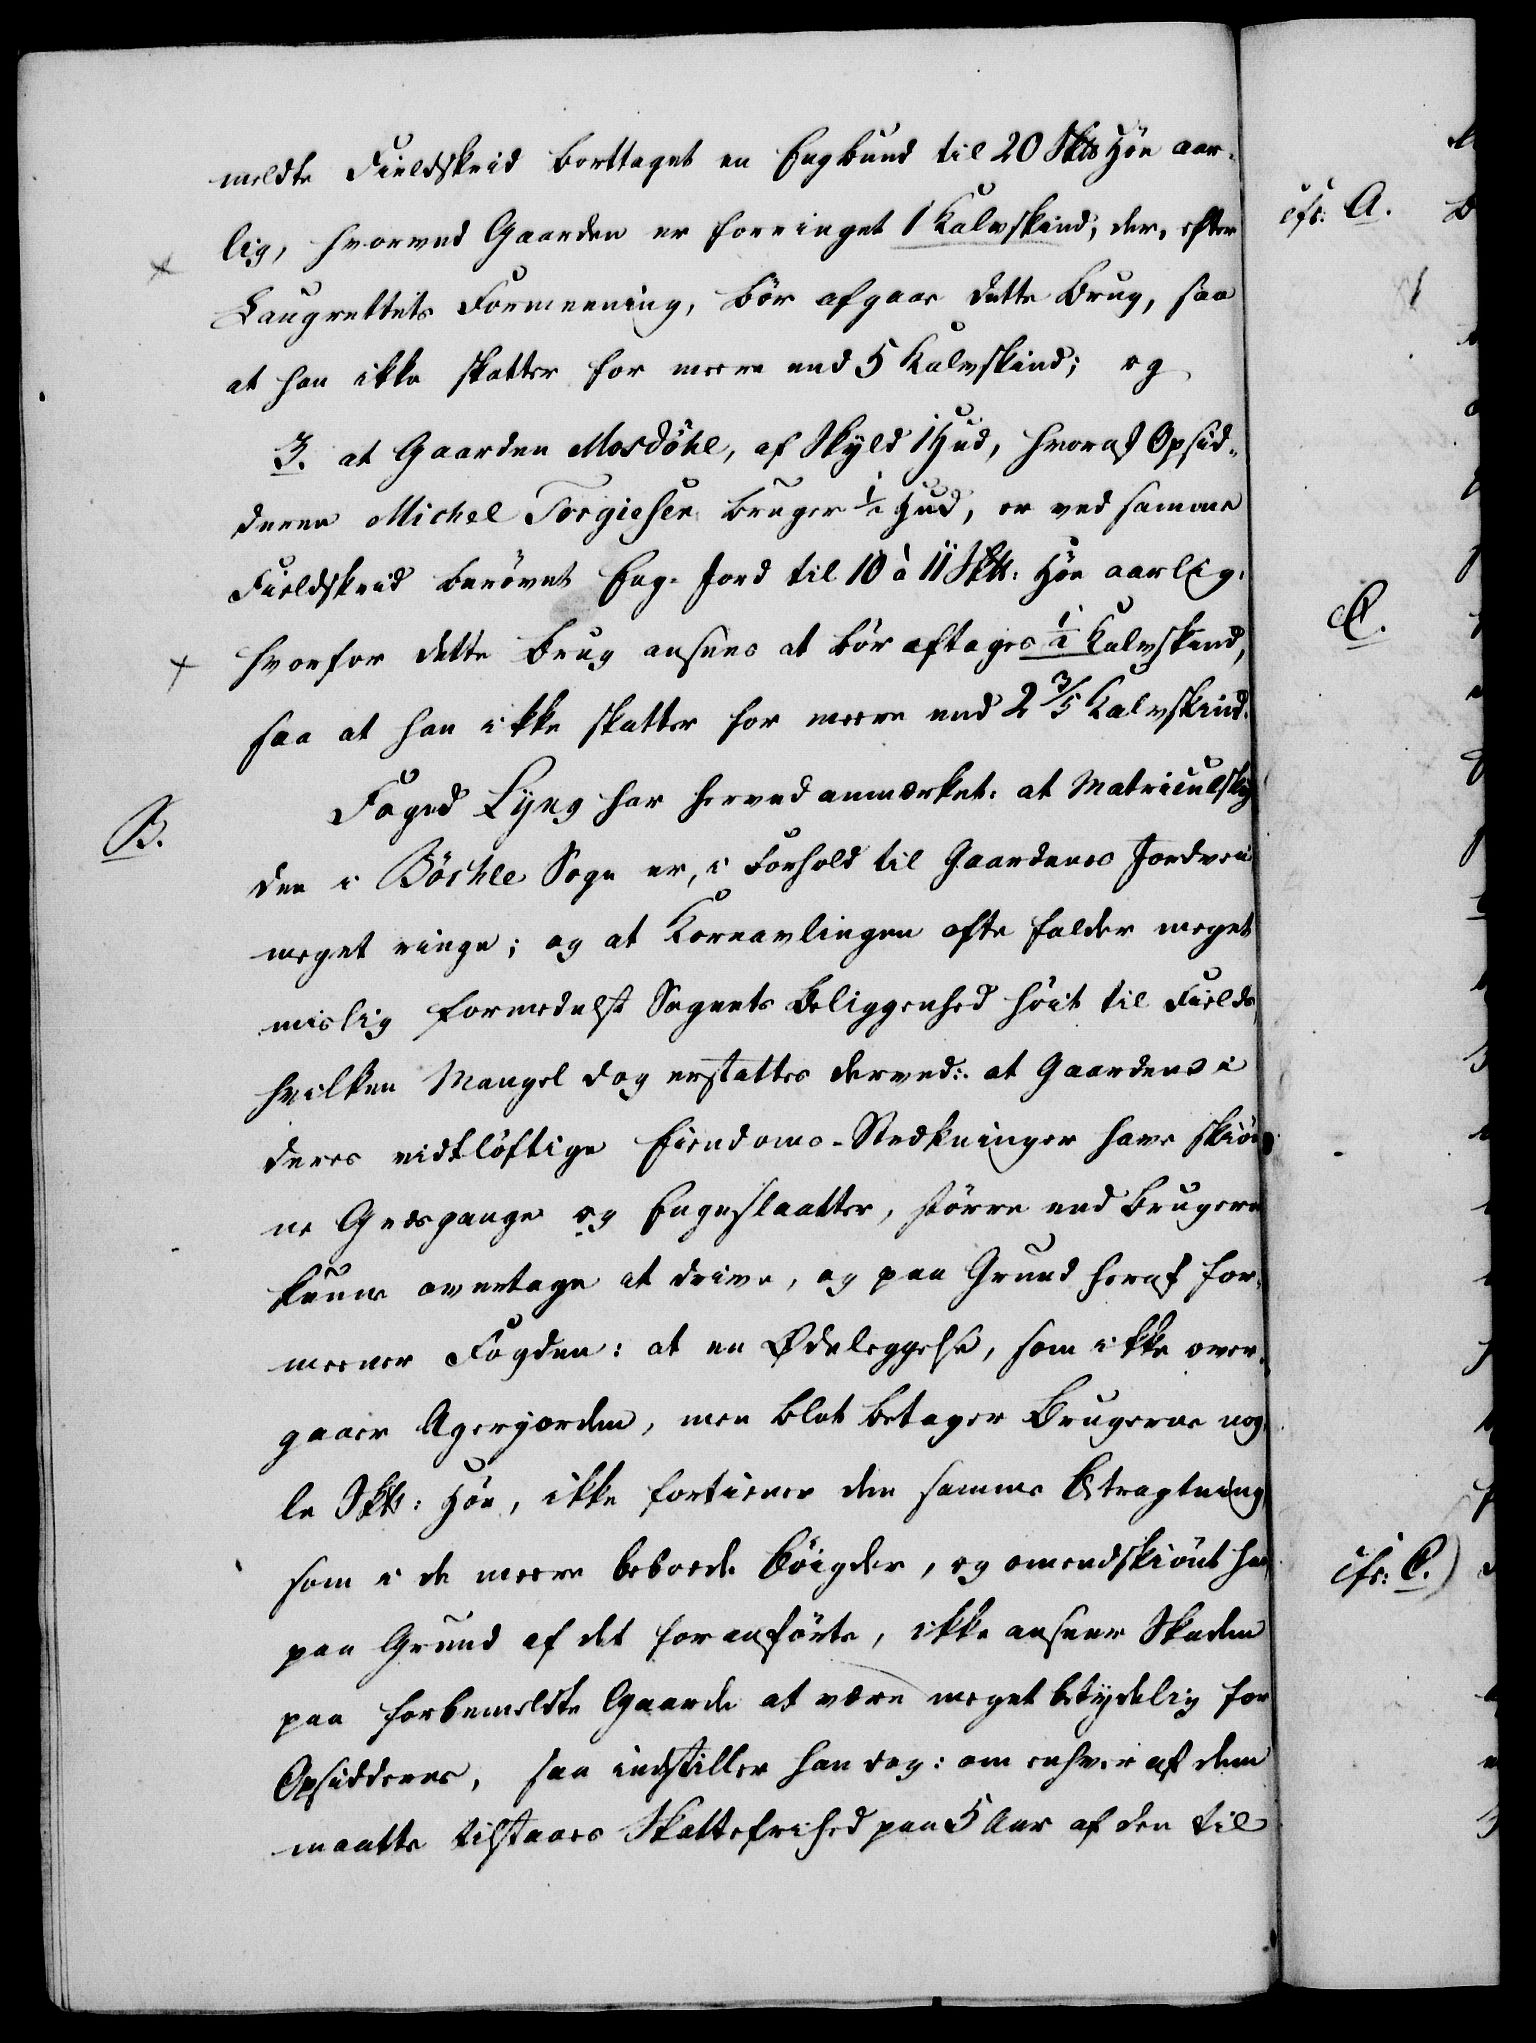 meldte Fieldskred borttaget en Engbund til 20 Sktts Höe aar-
lig, hvorved Gaarden er forringet 1 Kalvskind, der, efter
Laugrettets Formeening, bör afgaae dette Brug, saa
at han ikke skatter for meere end 5 Kalvskind; og
3. at Gaarden Mosdöhl, af Skyld 1 Hud, hvoraf Opsid-
deren Michel Torgiesen bruger ½ Hud, er ved samme
Fieldskred berövet Eng-Jord til 10 à 11 Sktt: Höe aarlig.
hvorfor dette Brug ansees at bör aftages ½ Kalvskind,
saa at han ikke skatter for meere end 2 3/5 Kalvskind.
B.
Foged Lyng har herved anmærket: at Matriculsky
den i Böshle Sogn er, i Forhold til Gaardenes Jordvei
meget ringe; og at Kornavlingen ofte falder meget
mislig formedelst Sognets Beliggenhed höit til Fields
hvilken Mangel dog erstattes derved: at Gaardene i
deres vidtlöftige Eiendoms-Strekninger have skiön
ne Græsgange og Engeslaatter, större end Brugerne
kunne overtage at drive, og paa Grund heraf for-
meener Fogden: at en Ødeleggelse, som ikke over-
gaaer Agerjorden, men blot betager Brugerne nog-
le Sktt: Höe, ikke fortiener den samme Betragtning
som i de meere beboede Böigder, og omendskiönt han
paa Grund af det foranförte, ikke anseer Skaden
paa forbemeldte Gaarde at være meget betydelig for
Opsidderne, saa indstiller han dog: om enhver af dem
maatte tilstaaes Skattefrihed paa 5 Aar af den til
cfr: A.
C.
cfr: C.)